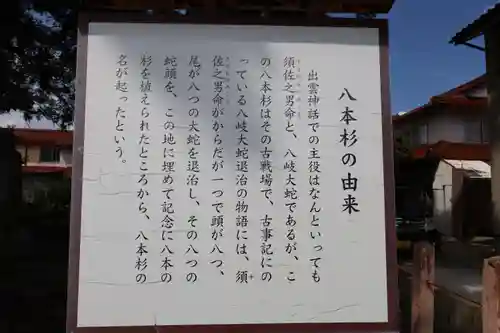 八本杉の由来
出雲神話での主役はなんといっても
須佐之男命と、八岐大蛇であるが、こ
の八本杉はその古戦場で、古事記にの
っている八岐大蛇退治の物語には、須
佐之男命がからだが一つで頭が八つ、
尾が八つの大蛇を退治し、その八つの
蛇頭を、この地に埋めて記念に八本の
杉を植えられたところから、八本杉の
名が起ったという。